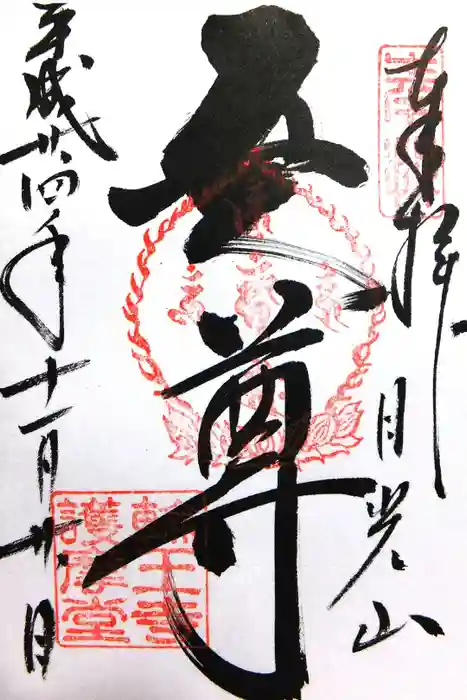 奉拝
日光山
五大尊
輪王寺
護摩堂
平成廿四年十一月廿日